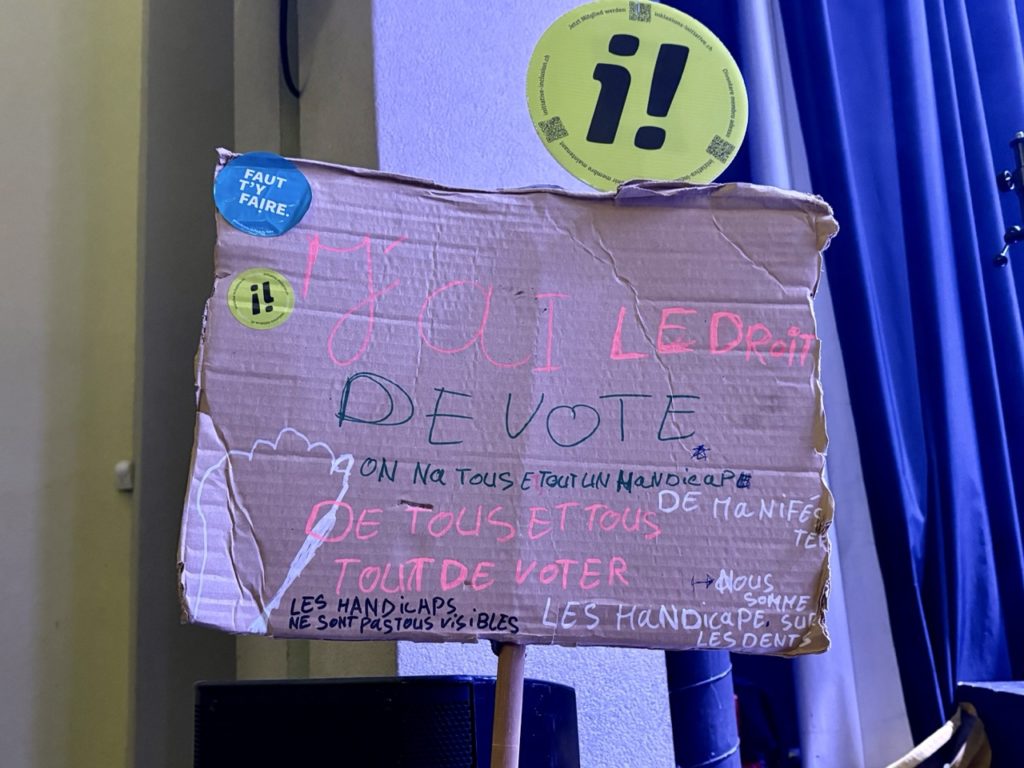 Jetzt Mitglied werden
inklusions-initiative.ch
initiative-inclusion.ch
i!
FAUT
T'Y
FAIRE.
i!
J'aI LE DROIT
DE VOTE
ON Na TOUS ETOUT UN HaNDicaPE
DE MaNiFéS
TER
DE TOUS ET TOUS
TOUT DE VOTER
→ NOUS
SOMME
LES HANDiCAPS
NE SONT PAS TOUS ViSIBLES
LES HaNDicaPE. SUR
LES DENTS